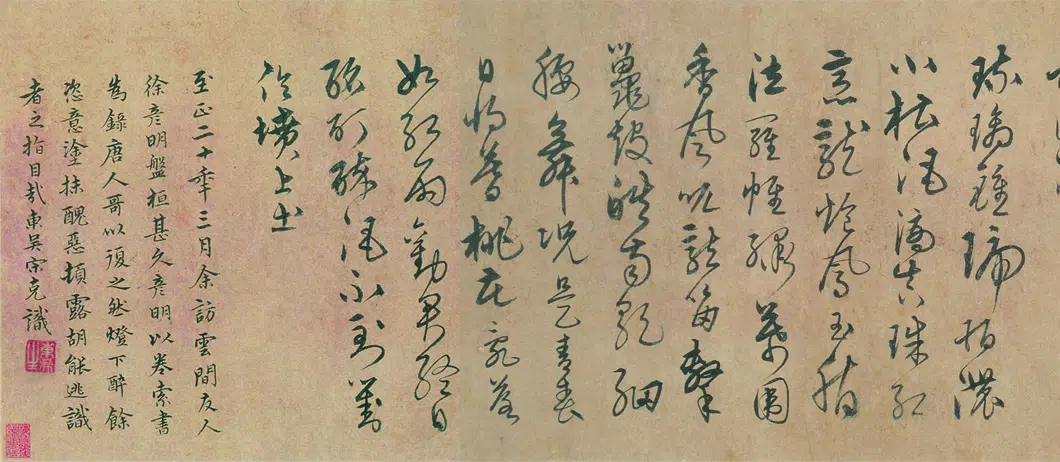 琉璃鍾琥珀濃
小槽酒滴真珠紅
烹龍炮鳳玉脂
泣羅幃繡幕圍
香風吹龍笛擊
鼉鼓皓齒歌細
腰舞況是青春
日將暮桃花亂落
如紅雨勸君終日
酩酊醉酒不到劉
伶墳上土
至正二十年三月余訪雲間友人
徐彥明盤桓甚久彥明以卷索書
為錄唐人哥以復之然燈下醉餘
恣意塗抹醜惡頓露胡能逃識
者之指目哉東吳宋克識